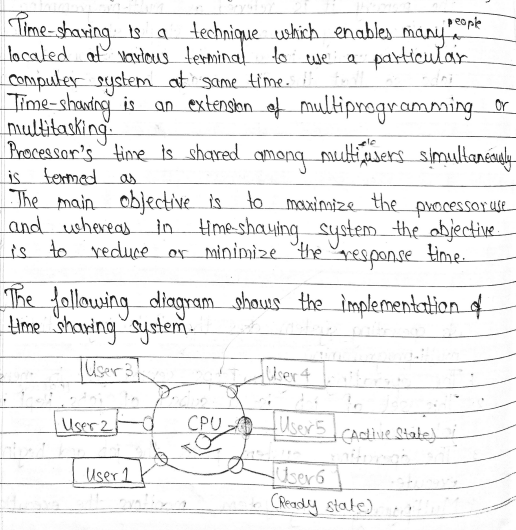 Time-sharing is a technique which enables many people
located at various terminal to use a particular
computer system at same time.
Time-sharing is an extension of multiprogramming or
multitasking.
Processor's time is shared among multiple users simultaneously
is termed as
The main objective is to maximize the processor use
and whereas in time-sharing system the objective
is to reduce or minimize the response time.
The following diagram shows the implementation of
time sharing system.
User 3
User 4
User 2
CPU
User 5 (Active state)
User 1
User 6
(Ready state)